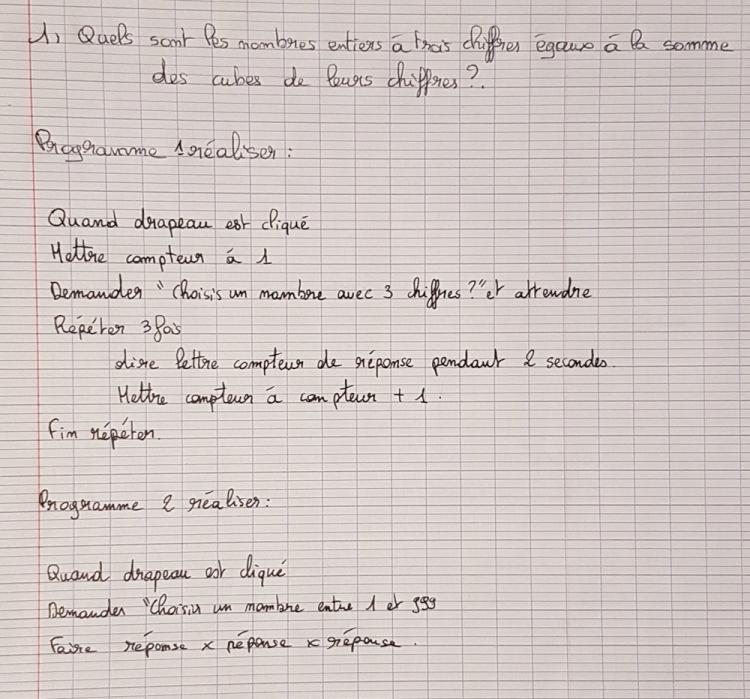 1) Quels sont les nombres entiers à trois chiffres égaux à la somme
des cubes de leurs chiffres ?
Programme 1 réaliser :
Quand drapeau est cliqué
Mettre compteur à 1
Demander "Choisis un nombre avec 3 chiffres ?" et attendre
Répéter 3 fois
dire lettre compteur de réponse pendant 2 secondes.
Mettre compteur à compteur + 1.
Fin répéter.
Programme 2 réaliser :
Quand drapeau est cliqué
Demander "Choisir un nombre entre 1 et 999
Faire réponse x réponse x réponse.